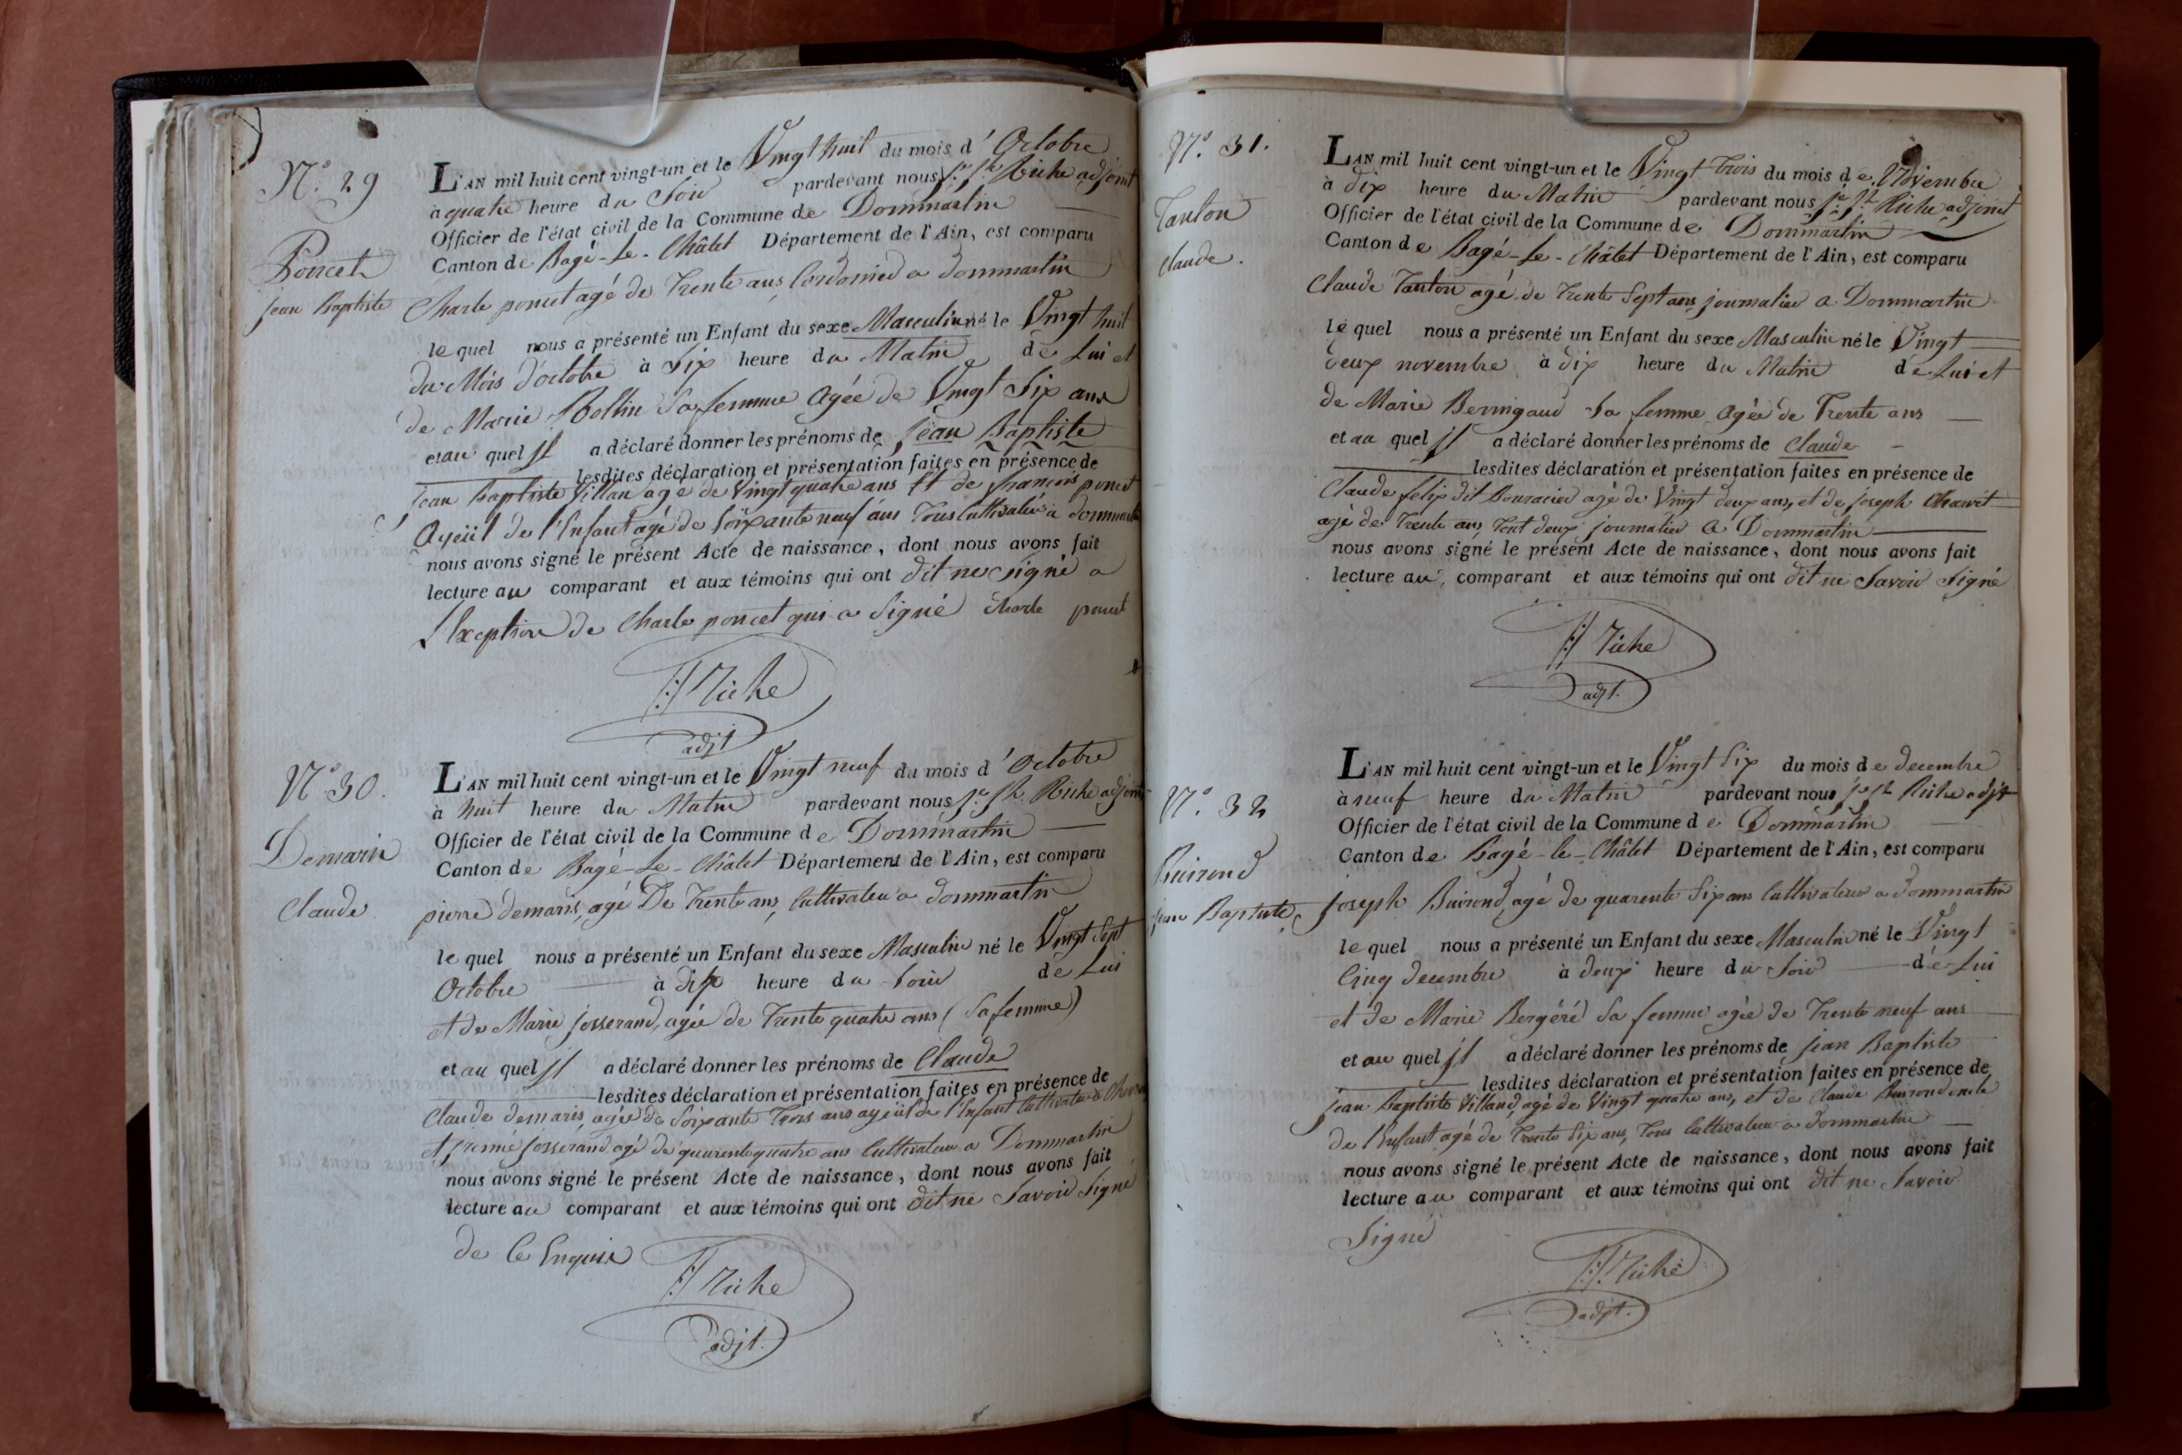 N.º 29
Poncet
jean Baptiste
L'AN mil huit cent vingt-un et le Vingt huit du mois d' Octobre
à quatre heure du Soir pardevant nous jn jh Riche adjoint
Officier de l'état civil de la Commune de Dommartin
Canton de Bagé-Le-Châtel Département de l'Ain, est comparu
Charle poncet agé de Trente ans Cordonnier a dommartin
le quel nous a présenté un Enfant du sexe Masculin né le Vingt huit
du Mois d'octobre à Six heure du Matin de Lui et
de Marie Rollin Sa femme Agée de Vingt Six ans
et au quel Il a déclaré donner les prénoms de jean Baptiste
lesdites déclaration et présentation faites en présence de
jean Baptiste Villan agé de Vingt quatre ans Et de francois poncet
Ayeüil de l'Enfant agé de Soixante neuf ans Tous Cultivateur a dommartin
nous avons signé le présent Acte de naissance, dont nous avons fait
lecture au comparant et aux témoins qui ont dit ne Signé a
l'Exception de Charle poncet qui a Signé Charle poncet
Riche
adjt
N.º 30.
Demaris
Claude
L'AN mil huit cent vingt-un et le Vingt neuf du mois d' Octobre
à huit heure du Matin pardevant nous jn jh Riche adjoint
Officier de l'état civil de la Commune de Dommartin
Canton de Bagé-Le-Châtel Département de l'Ain, est comparu
pierre demaris, agé De Trente ans, Cultivateur a dommartin
le quel nous a présenté un Enfant du sexe Masculin né le Vingt Sept
Octobre à dix heure du Soir de Lui
et de Marie josserand, agée de Trente quatre ans (Sa femme)
et au quel Il a déclaré donner les prénoms de Claude
lesdites déclaration et présentation faites en présence de
Claude demaris, agée de Soixante Trois ans ayeüil de l'Enfant Cultivateur a
Et pierre josserand agé de quarente quatre ans Cultivateur a Dommartin
nous avons signé le présent Acte de naissance, dont nous avons fait
lecture au comparant et aux témoins qui ont dit ne Savoir Signé
de Ce Enquis
Riche
adjt.
N.º 31.
Tanton
Claude.
L'AN mil huit cent vingt-un et le Vingt Trois du mois de Novembre
à dix heure du Matin pardevant nous jn jh Riche adjoint
Officier de l'état civil de la Commune de Dommartin
Canton de Bagé-Le-Châtel Département de l'Ain, est comparu
Claude Tanton agé de Trente Sept ans journalier a Dommartin
le quel nous a présenté un Enfant du sexe Masculin né le Vingt
deux novembre à dix heure du Matin de Lui et
de Marie Bernigaud Sa femme Agée de Trente ans
et au quel Il a déclaré donner les prénoms de Claude
lesdites déclaration et présentation faites en présence de
Claude felix dit Bouracier agé de Vingt deux ans, et de joseph
agé de Trente ans, Tout deux journalier a Dommartin
nous avons signé le présent Acte de naissance, dont nous avons fait
lecture au comparant et aux témoins qui ont dit ne Savoir Signé
Riche
adjt.
N.º 32
Buirond
jean Baptiste
L'AN mil huit cent vingt-un et le Vingt Six du mois de decembre
à neuf heure du Matin pardevant nous jn jh Riche adjt
Officier de l'état civil de la Commune de Dommartin
Canton de Bagé-le-Châtel Département de l'Ain, est comparu
joseph Buirond, agé de quarente Six ans Cultivateur a dommartin
le quel nous a présenté un Enfant du sexe Masculin né le Vingt
Cinq decembre à deux heure du Soir de Lui
et de Marie Bergéré Sa femme agée de Trente neuf ans
et au quel Il a déclaré donner les prénoms de jean Baptiste
lesdites déclaration et présentation faites en présence de
jean Baptiste Villand, agé de Vingt quatre ans, et de Claude Buirond oncle
de l'Enfant agé de Trente Six ans, Tous Cultivateur a dommartin
nous avons signé le présent Acte de naissance, dont nous avons fait
lecture au comparant et aux témoins qui ont dit ne Savoir
Signé
Riche
adjt.